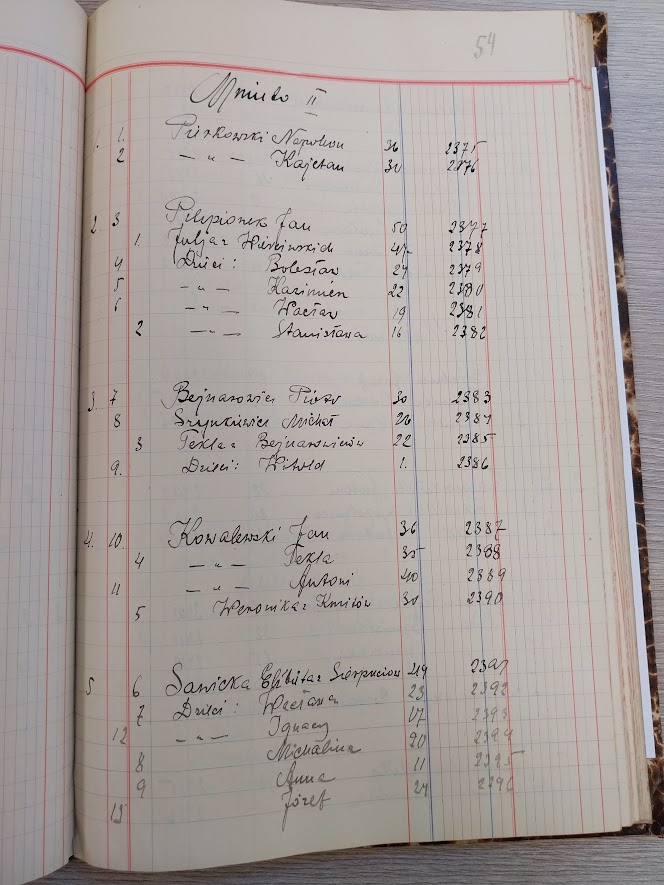 54
II
1. Napoleon 36 2375
2 — „ — Kajetan 30 2376
2. 3 Jan 50 2377
1. Julja z 2378
4 Dzieci: Bolesław 24 2379
5 — „ — Kazimierz 22 2380
6 — „ — Wacław 19 2381
2 — „ — Stanisława 16 2382
3. 7 Bejnarowicz Piotr 30 2383
8 Szynkiewicz Michał 26 2384
3 Tekla z Bejnarowiczów 22 2385
9. Dzieci: Witold 1. 2386
4. 10 Kowalewski Jan 36 2387
4 — „ — Tekla 35 2388
11 — „ — Antoni 40 2389
5 Weronika z Kmitów 30 2390
5 6 Sawicka Elżbieta z 49 2391
7 Dzieci: Wacława 23 2392
12 — „ — Ignacy 17 2393
8 Michalina 20 2394
9 Anna 11 2395
13 Józef 24 2396